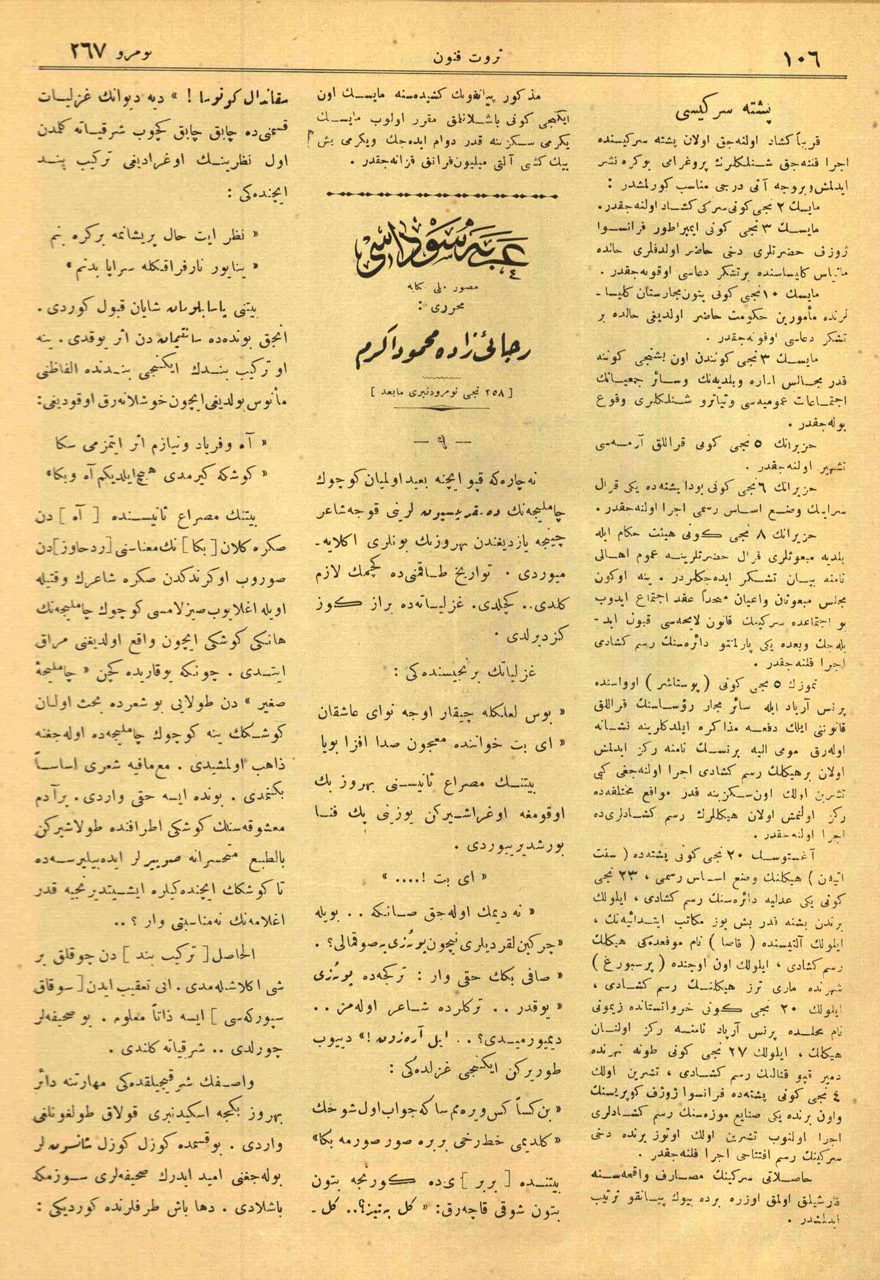 ١٠٦
ثروت فنون
نومرو ٢٦٧
پشته سركيسی
قريباً كشاد اولنه‌جق اولان پشته سركيسنده
اجرا قلنه‌جق شنلكلرك پروغرامی بوكره نشر
ايدلمش وبروجه آتی درجی مناسب كورلمشدر :
مايسك ٢ نجی كونی سركی كشاد اولنه‌جقدر.
مايسك ٣ نجی كونی ايمپراطور فرانسوا
ژوزف حضرتلری دخی حاضر اولدقلری حالده
ماتياس كليساسنده برتشكر دعاسی اوقونه‌جقدر .
مايسك ١٠ نجی كونی بتون مجارستان كليسا-
لرنده مأمورين حكومت حاضر اولديغی حالده بر
تشكر دعاسی اوقونه‌جقدر .
مايسك ٣ نجی كونندن اون بشنجی كوننه
قدر مجالس اداره وبلديه‌نك وسائر جمعياتك
اجتماعات عموميه‌سی وتياترو شنلكلری وقوع
بوله‌جقدر .
حزيرانك ٥ نجی كونی قراللق آرمه‌سی
تشهير اولنه‌جقدر .
حزيرانك ٦ نجی كونی بودا پشته‌ده يكی قرال
سراينك وضع اساس رسمی اجرا اولنه‌جقدر .
حزيرانك ٨ نجی كونی هيئت حكام ايله
بلديه مبعوثلری قرال حضرتلرينه عموم اهالی
نامنه بيان تشكر ايده‌جكلردر . ينه اوكون
مجلس مبعوثان واعيان متحداً عقد اجتماع ايدوب
بو اجتماعده سركينك قانون لايحه‌سی قبول ايد-
يله‌جك وبعده يكی پارلمنتو دائره‌سنك رسم كشادی
اجرا قلنه‌جقدر .
تموزك ٥ نجی كونی ( پوستاشر ) اوواسنده
پرنس آرپاد ايله سائر مجار رؤساسنك قراللق
قانوننی ايلك دفعه مذاكره ايلدكلرينه نشانه
اوله‌رق مومی اليه پرنسك نامنه ركز ايدلمش
اولان برهيكلك رسم كشادی اجرا اولنه‌جغی كبی
تشرين اولك اون‌سكزينه قدر مواقع مختلفه‌ده
ركز اولنمش اولان هيكللرك رسم كشادلری‌ده
اجرا اولنه‌جقدر .
آغستوسك ٢٠ نجی كونی پشته‌ده ( سنت
اتيه‌ن ) هيكلنك وضع اساس رسمی ، ٢٣ نجی
كونی يكی عدليه دائره‌سنك رسم كشادی ، ايلولك
برندن بشنه قدر بش يوز مكاتب ابتدائيه‌نك ،
ايلولك آلتيسنده ( قاصا ) نام موقعده‌كی هيكلك
رسم كشادی ، ايلولك اون اوچنده ( پرسبورغ )
شهرنده ماری ترز هيكلنك رسم كشادی ،
ايلولك ٢٠ نجی كونی خرواتستانده زيمونی
نام محلده پرنس آرپاد نامنه ركز اولنان
هيكلك ، ايلولك ٢٧ نجی كونی طونه نهرنده
دمير قپو قنالنك رسم كشادی ، تشرين اولك
٤ نجی كونی پشته‌ده فرانسوا ژوزف كوپريسنك
واون برنده يكی صنايع موزه‌سنك رسم كشادلری
اجرا اولنوب تشرين اولك اوتوز برنده دخی
سركينك رسم افتتاحی اجرا قلنه‌جقدر .
حاصلاتی سركينك مصارف واقعه‌سنه
قارشيلق اولمق اوزره برده بيوك پيانقو ترتيب
ايدلمشدر .
مذكور پيانقونك كشيده‌سنه مايسك اون
ايكنجی كونی باشلانلمق مقرر اولوب مايسك
يكرمی سكزينه قدر دوام ايده‌جك ويكرمی بش
بيك كشی آلتی ميليون فرانق قزانه‌جقدر .
عربه سوداسی
مصور ملی حكايه
محرری :
رجائی زاده محمود اكرم
[ ٢٥٨ نجی نومرودنبری مابعد ]
— ٩ —
نه چاره كه قپو ايچنه بعيد اولميان كوچوك
چامليجه‌نك ده قديسيون لرينی قوجه شاعر
چيچه يازديغندن بهروزبك بونلری اكلايه-
ميوردی . تواريخ طاقمنی‌ده كچمك لازم
كلدی . . كچلدی . غزلياته‌ده براز كوز
كزديرلدی .
غزلياتك برنجيسنده‌كی :
« بوس لعلكله چيقار اوجه نوای عاشقان
« ای بت خواننده معجون صدا افزا بويا
بيتنك مصراع ثانيسنی بهروز بك
اوقومغه اوغراشيركن يوزينی پك فنا
بورشديريیوردی .
« ای بت !.... »
« نه ديمك اوله‌جق صانكه . . بويله
« صافی بكك حقی وار : تركجه‌ده پوئزی
« يوقدر . . تركلرده شاعر اوله‌مز . .
ديميورميدی؟ . . ايل آره‌زون !» دييوب
طوريركن ايكنجی غزلده‌كی :
« بن كساكس ويره‌مم ساكه جواب اول شوخك
« كلديمی خط رخی بربره صور صورمه بكا»
بيتنده [ بربر ] ی‌ده كورنجه بتون
بتون شوقی قاچه‌رق: « كل به‌تيز؟.. كل -
سقاندال كونوسا ! » ديه ديوانك غزليات
قسمنی‌ده چابق چابق كچوب شرقياته كلمدن
اول نظرينك اوغراديغی تركيب بند
ايچنده‌كی :
« نظر ايت حال پريشانمه بركره بنم
« يناپور نارفراقكله سراپا بدنم »
بيتنی پاسابلومان شايان قبول كوردی .
آنجق بونده‌ده سانتيمان دن اثر يوقدی . ينه
او تركيب بندك ايكنجی بندنده الفاظنی
مأنوس بولديغی ايچون خوشلانه‌رق اوقوديغی:
« آه وفرياد ونيازم اثر ايتمزمی سكا
« كوشكه كيرمدی هيچ ايلديكم آه وبكا»
بيتنك مصراع ثانيسنده [ آه ] دن
صكره كلان [بكا] نك معناسنی [ردحاوز] دن
صوروب اوكرندكدن صكره شاعرك وقتيله
اويله اغلايوب صيزلامسی كوچوك چامليجه‌نك
هانكی كوشكی ايچون واقع اولديغنی مراق
ايتدی . چونكه يوقاريده كچن « چامليجهٔ
صغير » دن طولايی بو شعرده بحث اولنان
كوشكك ينه كوچوك چامليجه‌ده اوله‌جغنه
ذاهب اولمشيدی . مع‌مافيه شعری اساساً
بكنمدی . بونده ايسه حقی واردی . برآدم
معشوقه‌سنك كوشكی اطرافنده طولاشيركن
بالطبع متحسرانه صبر‌لر ايده‌بيليرسه‌ده
تا كوشكك ايچنده‌كيلره ايشيتديرنجيه قدر
اغلامه‌نك نه‌مناسبتی وار ؟ . .
الحاصل [ تركيب بند ] دن چوقلق بر
شی اكلاشله‌مدی . انی تعقيب ايدن [ سوقاق
سپوركه‌سی ] ايسه ذاتاً معلوم . بو صحيفه‌لر
چورلدی . . شرقياته كلندی .
واصفك شرقيجيلقده‌كی مهارتنه دائر
بهروز بكجه اسكيدنبری قولاق طولغونلغی
واردی . بوقسمده كوزل كوزل شانسون لر
بوله‌جغنی اميد ايدرك صحيفه‌لری سوزمكه
باشلادی . دها باش طرفلرنده كورديكی :